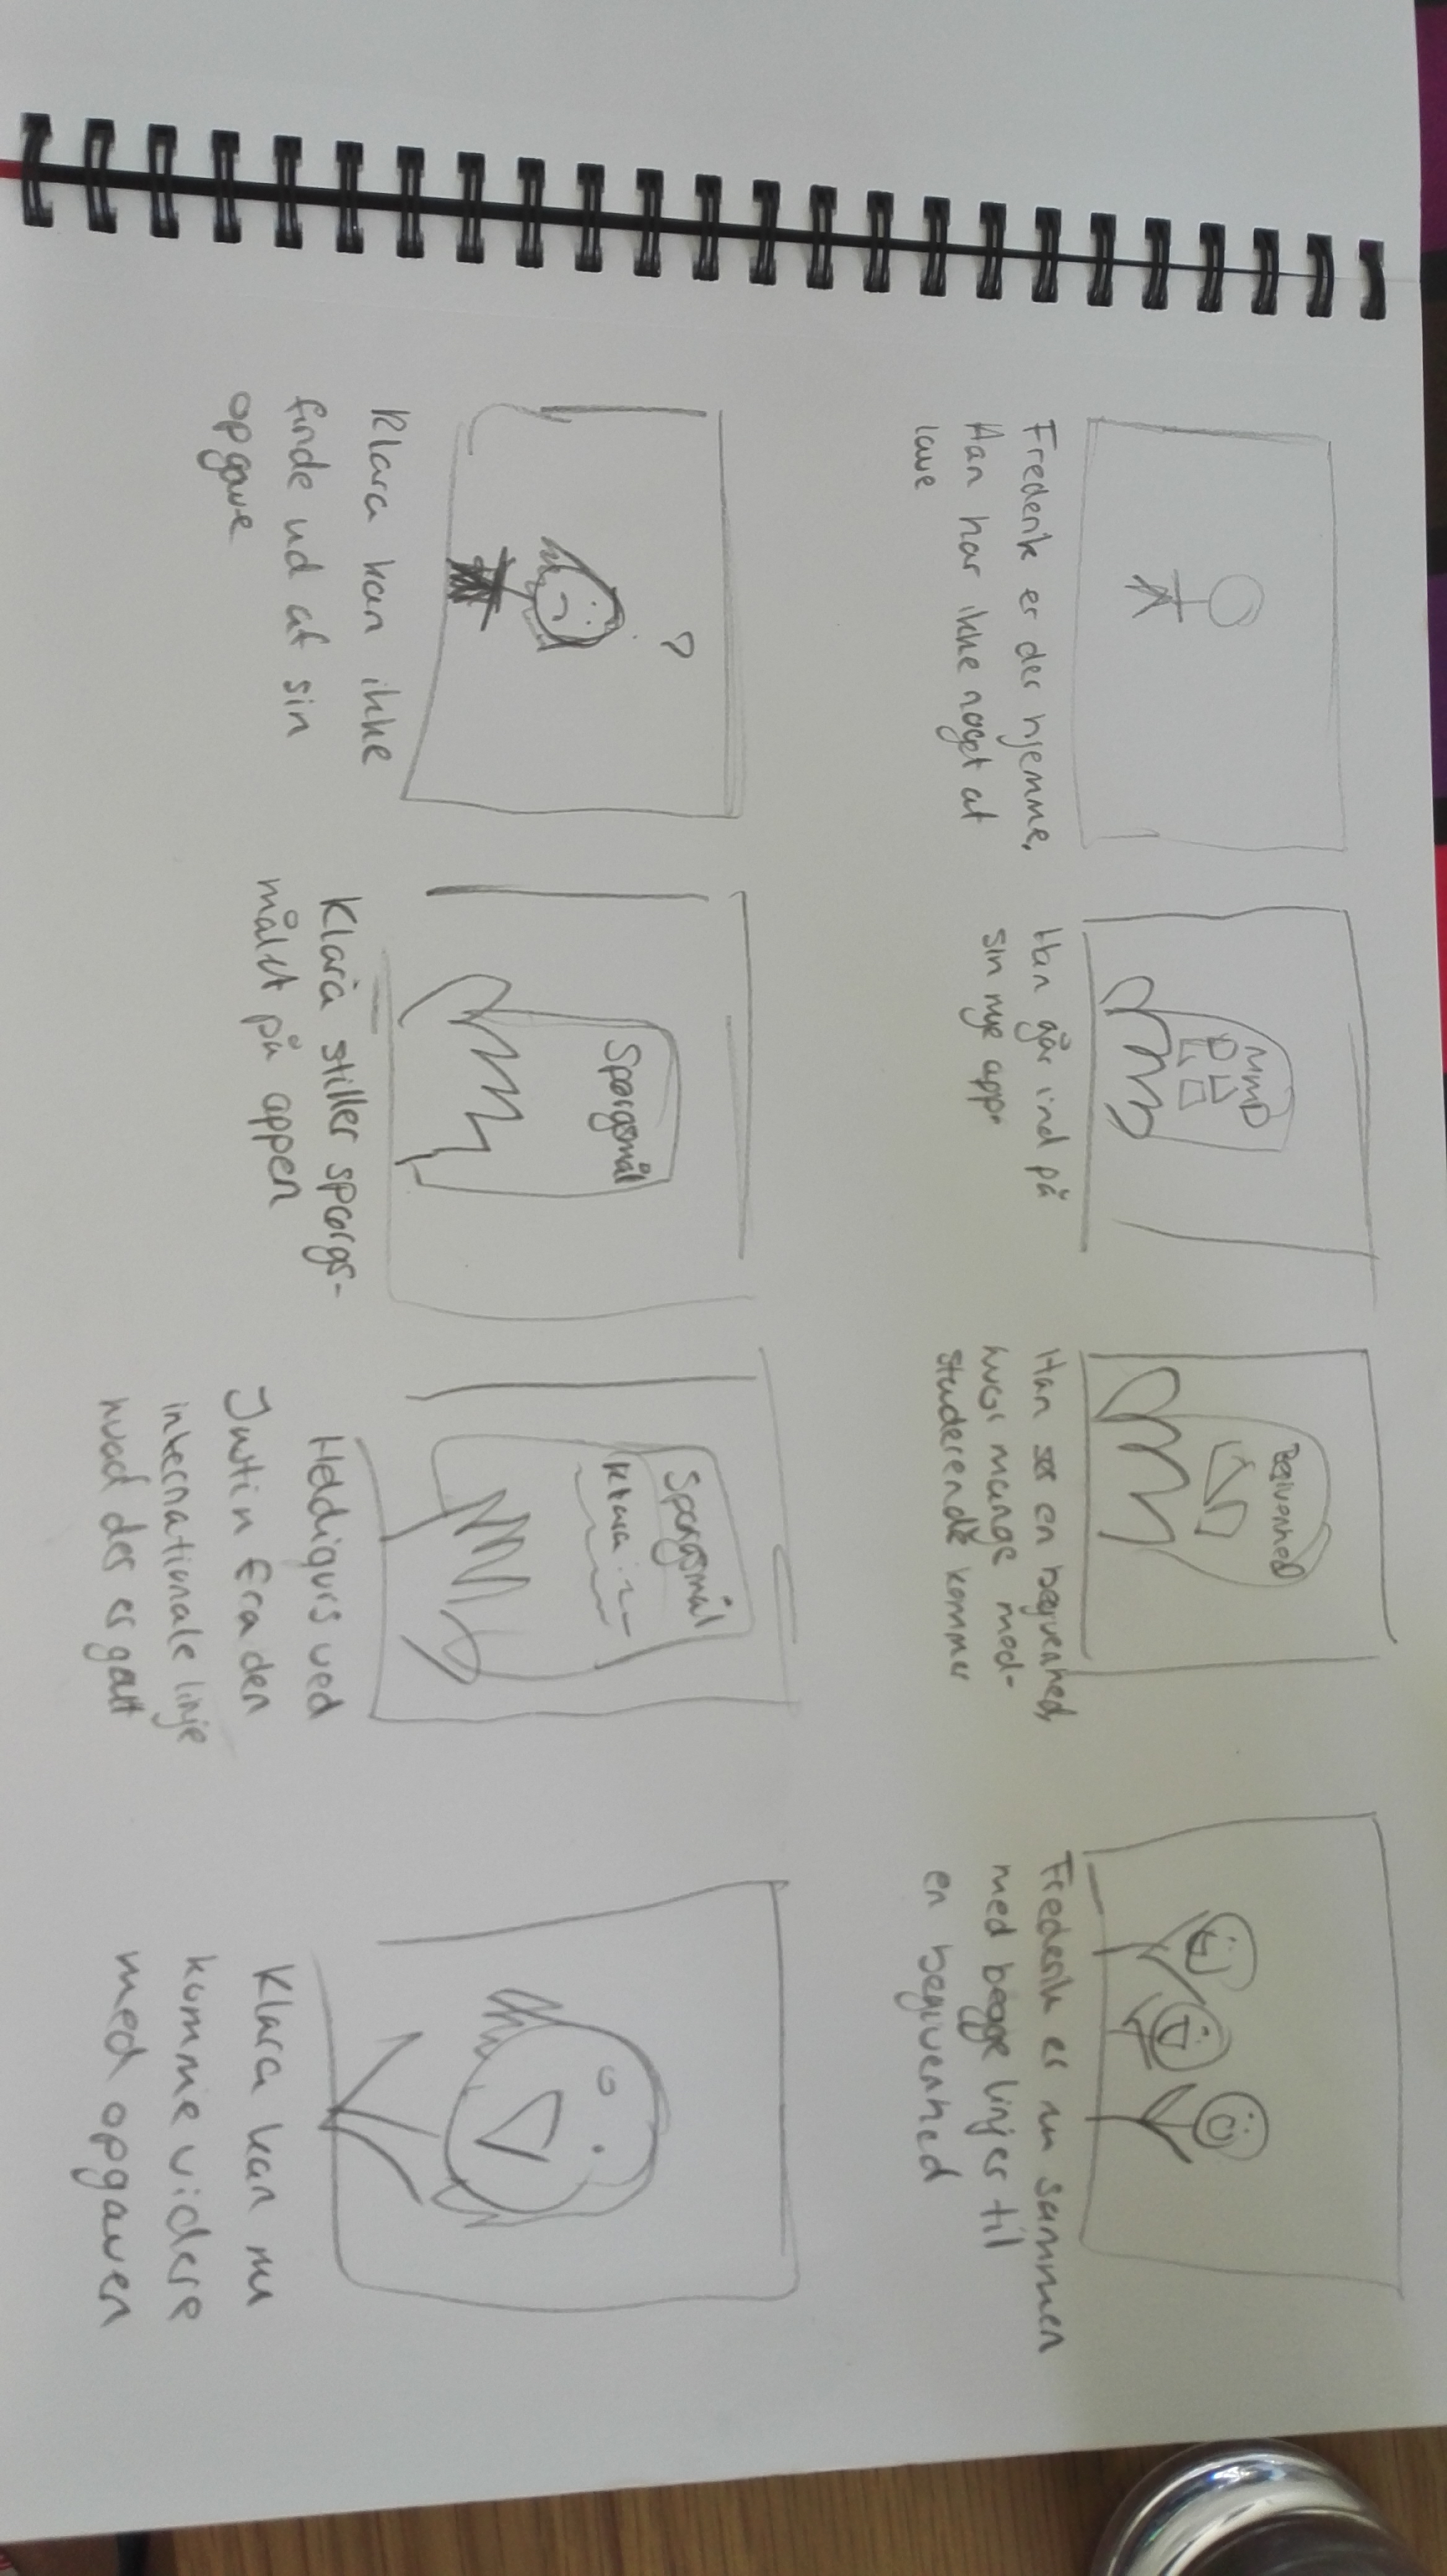 MMD
Begivenhed
Frederik er der hjemme.
Han har ikke noget at
lave
Han går ind på
sin nye app.
Han ser en begivenhed,
hvor mange med-
studerende kommer
Frederik er nu sammen
med begge linjer til
en begivenhed
?
Spørgsmål
Spørgsmål
Klara :
Klara kan ikke
finde ud af sin
opgave
Klara stiller spørgs-
målet på appen
Heldigvis ved
Justin fra den
internationale linje
hvad der er galt
Klara kan nu
komme videre
med opgaven